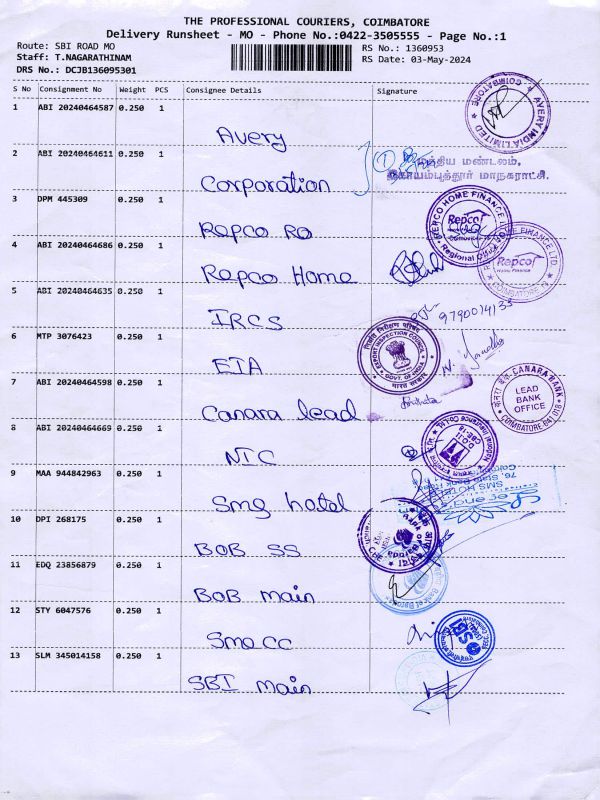 THE PROFESSIONAL COURIERS, COIMBATORE
Delivery Runsheet - MO - Phone No.:0422-3505555 - Page No.:1
Route: SBI ROAD MO
RS No.: 1360953
Staff: T.NAGARATHINAM
RS Date: 03-May-2024
DRS No.: DCJB136095301
S No Consignment No Weight PCS Consignee Details Signature
1 ABI 20240464587 0.250 1 Avery
COIMBATORE AVERY INDIA LIMITED
2 ABI 20240464611 0.250 1 Corporation
மத்திய மண்டலம்,
கோயம்புத்தூர் மாநகராட்சி.
3 DPM 445309 0.250 1 Repco Ro
REPCO HOME FINANCE Repco Regional Office
4 ABI 20240464686 0.250 1 Repco Home
HOME FINANCE LTD. Repco Home Finance COIMBATORE
5 ABI 20240464635 0.250 1 IRCS
9790014133
6 MTP 3076423 0.250 1 EIA
निर्यात निरीक्षण परिषद EXPORT INSPECTION COUNCIL GOVT. OF INDIA भारत सरकार
7 ABI 20240464598 0.250 1 Canara lead
CANARA BANK LEAD BANK OFFICE COIMBATORE 641 018
8 ABI 20240464669 0.250 1 NIC
9 MAA 944842963 0.250 1 Smg hotel
76, State Bank Road
SMS HOTEL
10 DPI 268175 0.250 1 BOB SS
11 EDQ 23856879 0.250 1 BOB main
Bank of Baroda
12 STY 6047576 0.250 1 Sme CC
13 SLM 345014158 0.250 1 SBI main